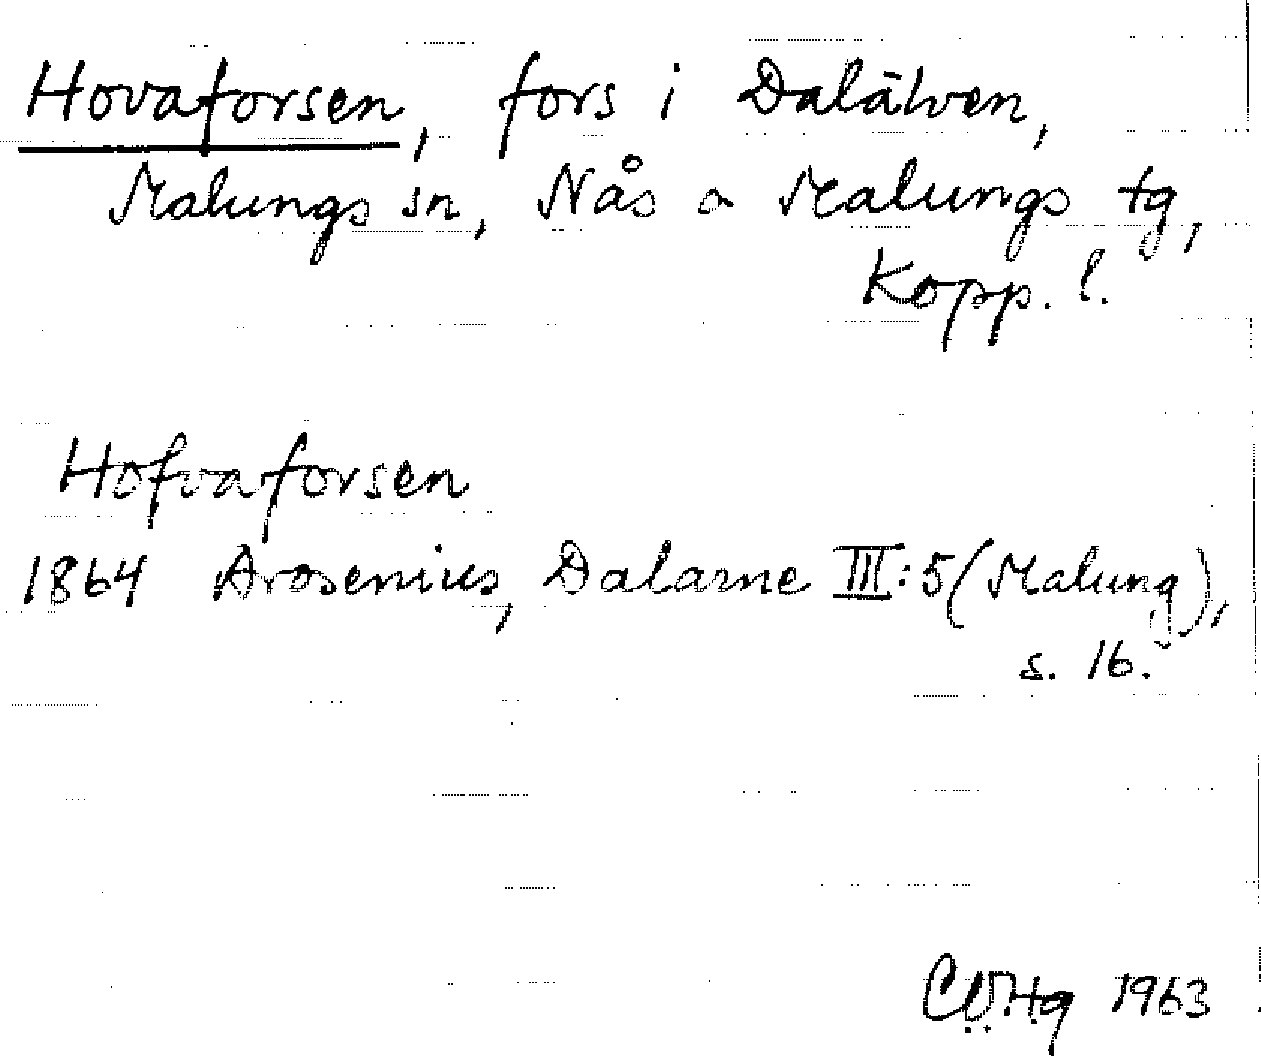 Hovaforsen, fors i Dalälven,
Malungs sn, Nås o Malungs tg,
Kopp. l.
Hofvaforsen
1864 Arosenius, Dalarne III:5 (Malung),
s. 16.
1963